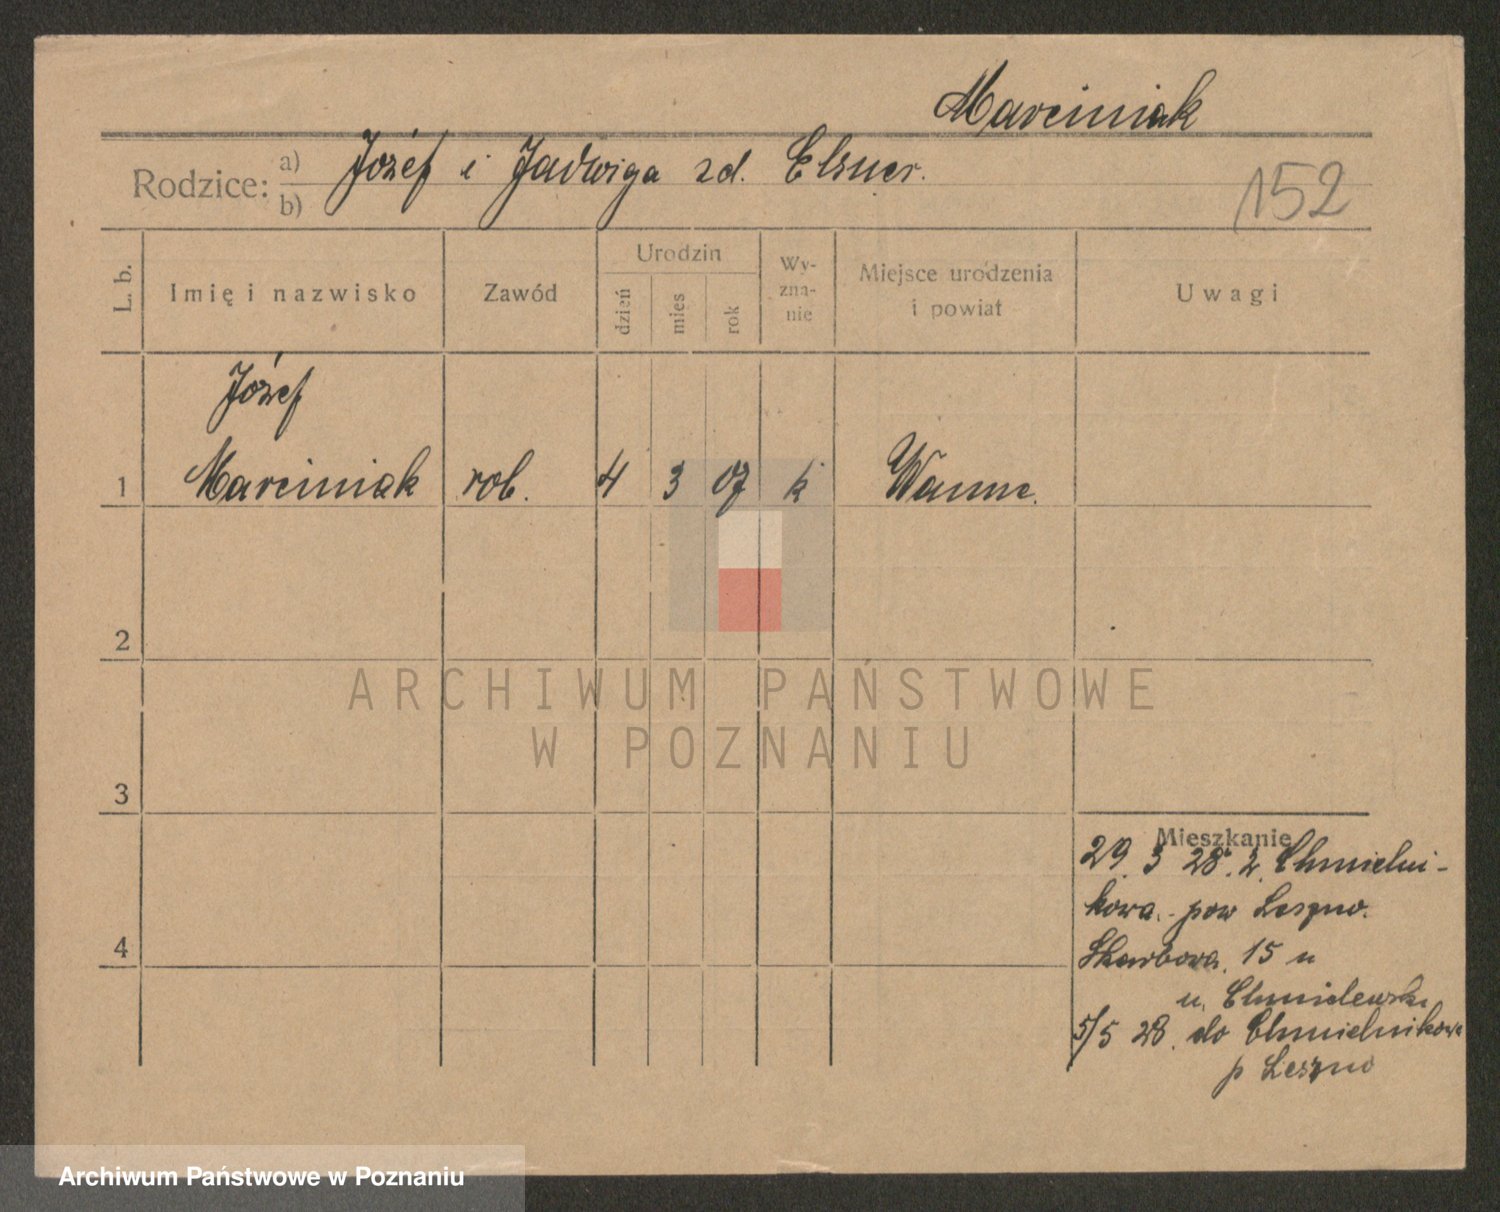 Marciniak
Rodzice: a) b) Józef i Jadwiga zd. Elsner.
152
L. b.
Imię i nazwisko
Zawód
Urodzin
dzień
mies
rok
Wy-
zna-
nie
Miejsce urodzenia
i powiat
Uwagi
Józef
1 Marciniak rob. 4 3 07 k Wanne.
2
3
4
Mieszkanie
29. 3 28. z. Chmielni-
kowa. pow Leszno.
Skarbowa. 15 u
u. Chmielewski
5/5 28. do Chmielnikowa
p Leszno
ARCHIWUM PAŃSTWOWE
W POZNANIU
Archiwum Państwowe w Poznaniu